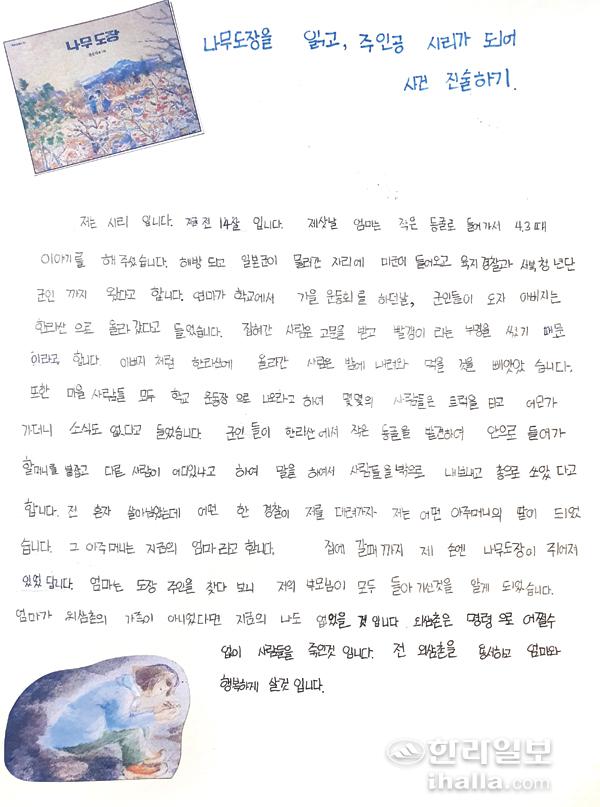 나무도장
나무도장을 읽고, 주인공 시리가 되어
사건 진술하기.
저는 시리 입니다. 전 14살 입니다. 제삿날 엄마는 작은 동굴로 들어가서 4.3 때
이야기를 해 주셨습니다. 해방 되고 일본군이 물러간 자리에 미군이 들어오고 육지경찰과 서북청년단
군인 까지 왔다고 합니다. 엄마가 학교에서 가을 운동회를 하던날, 군인들이 오자 아빠지는
한라산 으로 올라 갔다고 들었습니다. 잡혀간 사람은 고문을 받고 빨갱이 라는 누명을 썼기 때문
이라고 합니다. 아버지 처럼 한라산에 올라간 사람은 밤에 내려와 먹을 것을 빼앗았 습니다.
또한 마을 사람들 모두 학교 운동장 으로 나오라고 하여 몇몇의 사람들은 트럭을 타고 어딘가
가더니 소식도 없다고 들었습니다. 군인 들이 한라산에서 작은 동굴을 발견하여 안으로 들어가
할머니를 붙잡고 다른 사람이 어디있냐고 하여 말을 하여서 사람들을 밖으로 내보내고 총으로 쏘았 다고
합니다. 전 혼자 살아남았는데 어떤 한 경찰이 저를 데려가 저는 어떤 아주머니의 딸이 되었
습니다. 그 아주머니는 지금의 엄마 라고 합니다. 집에 갈때 까지 제 손엔 나무도장이 쥐어져
있었 답니다. 엄마는 도장 주인을 찾다 보니 저의 부모님이 모두 돌아 가신것을 알게 되었습니다.
엄마가 외삼촌의 가족이 아니었다면 지금의 나도 없었을 것 입니다 외삼촌은 명령 으로 어쩔수
없이 사람들을 죽인것 입니다. 전 외삼촌을 용서하고 엄마와
행복하게 살것 입니다.
한라일보
ihalla.com